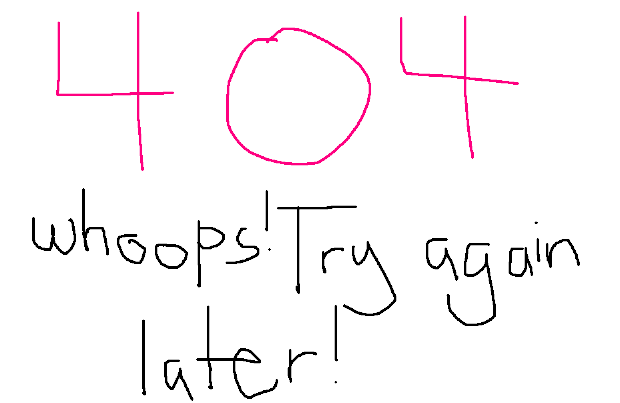 404
whoops! Try again
later!